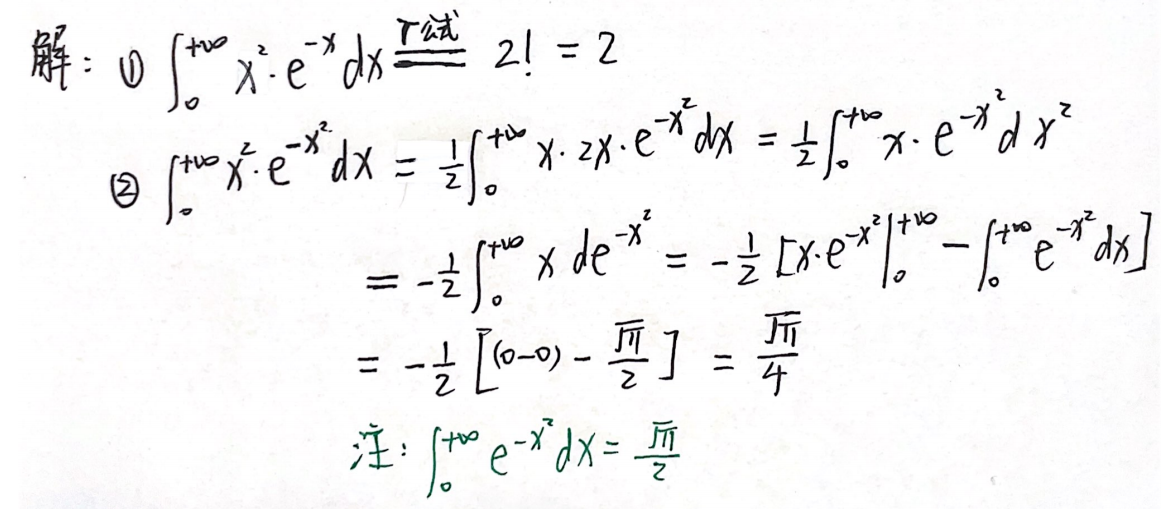 解: ① ∫₀^{+∞} x²·e^{-x} dx \xlongequal{Γ公式} 2! = 2
② ∫₀^{+∞} x²·e^{-x²} dx = \frac{1}{2}∫₀^{+∞} x·2x·e^{-x²} dx = \frac{1}{2}∫₀^{+∞} x·e^{-x²} d x²
= -\frac{1}{2}∫₀^{+∞} x de^{-x²} = -\frac{1}{2} [x·e^{-x²}|₀^{+∞} - ∫₀^{+∞} e^{-x²} dx]
= -\frac{1}{2} [(0-0) - \frac{\sqrt{π}}{2}] = \frac{\sqrt{π}}{4}
注: ∫₀^{+∞} e^{-x²} dx = \frac{\sqrt{π}}{2}